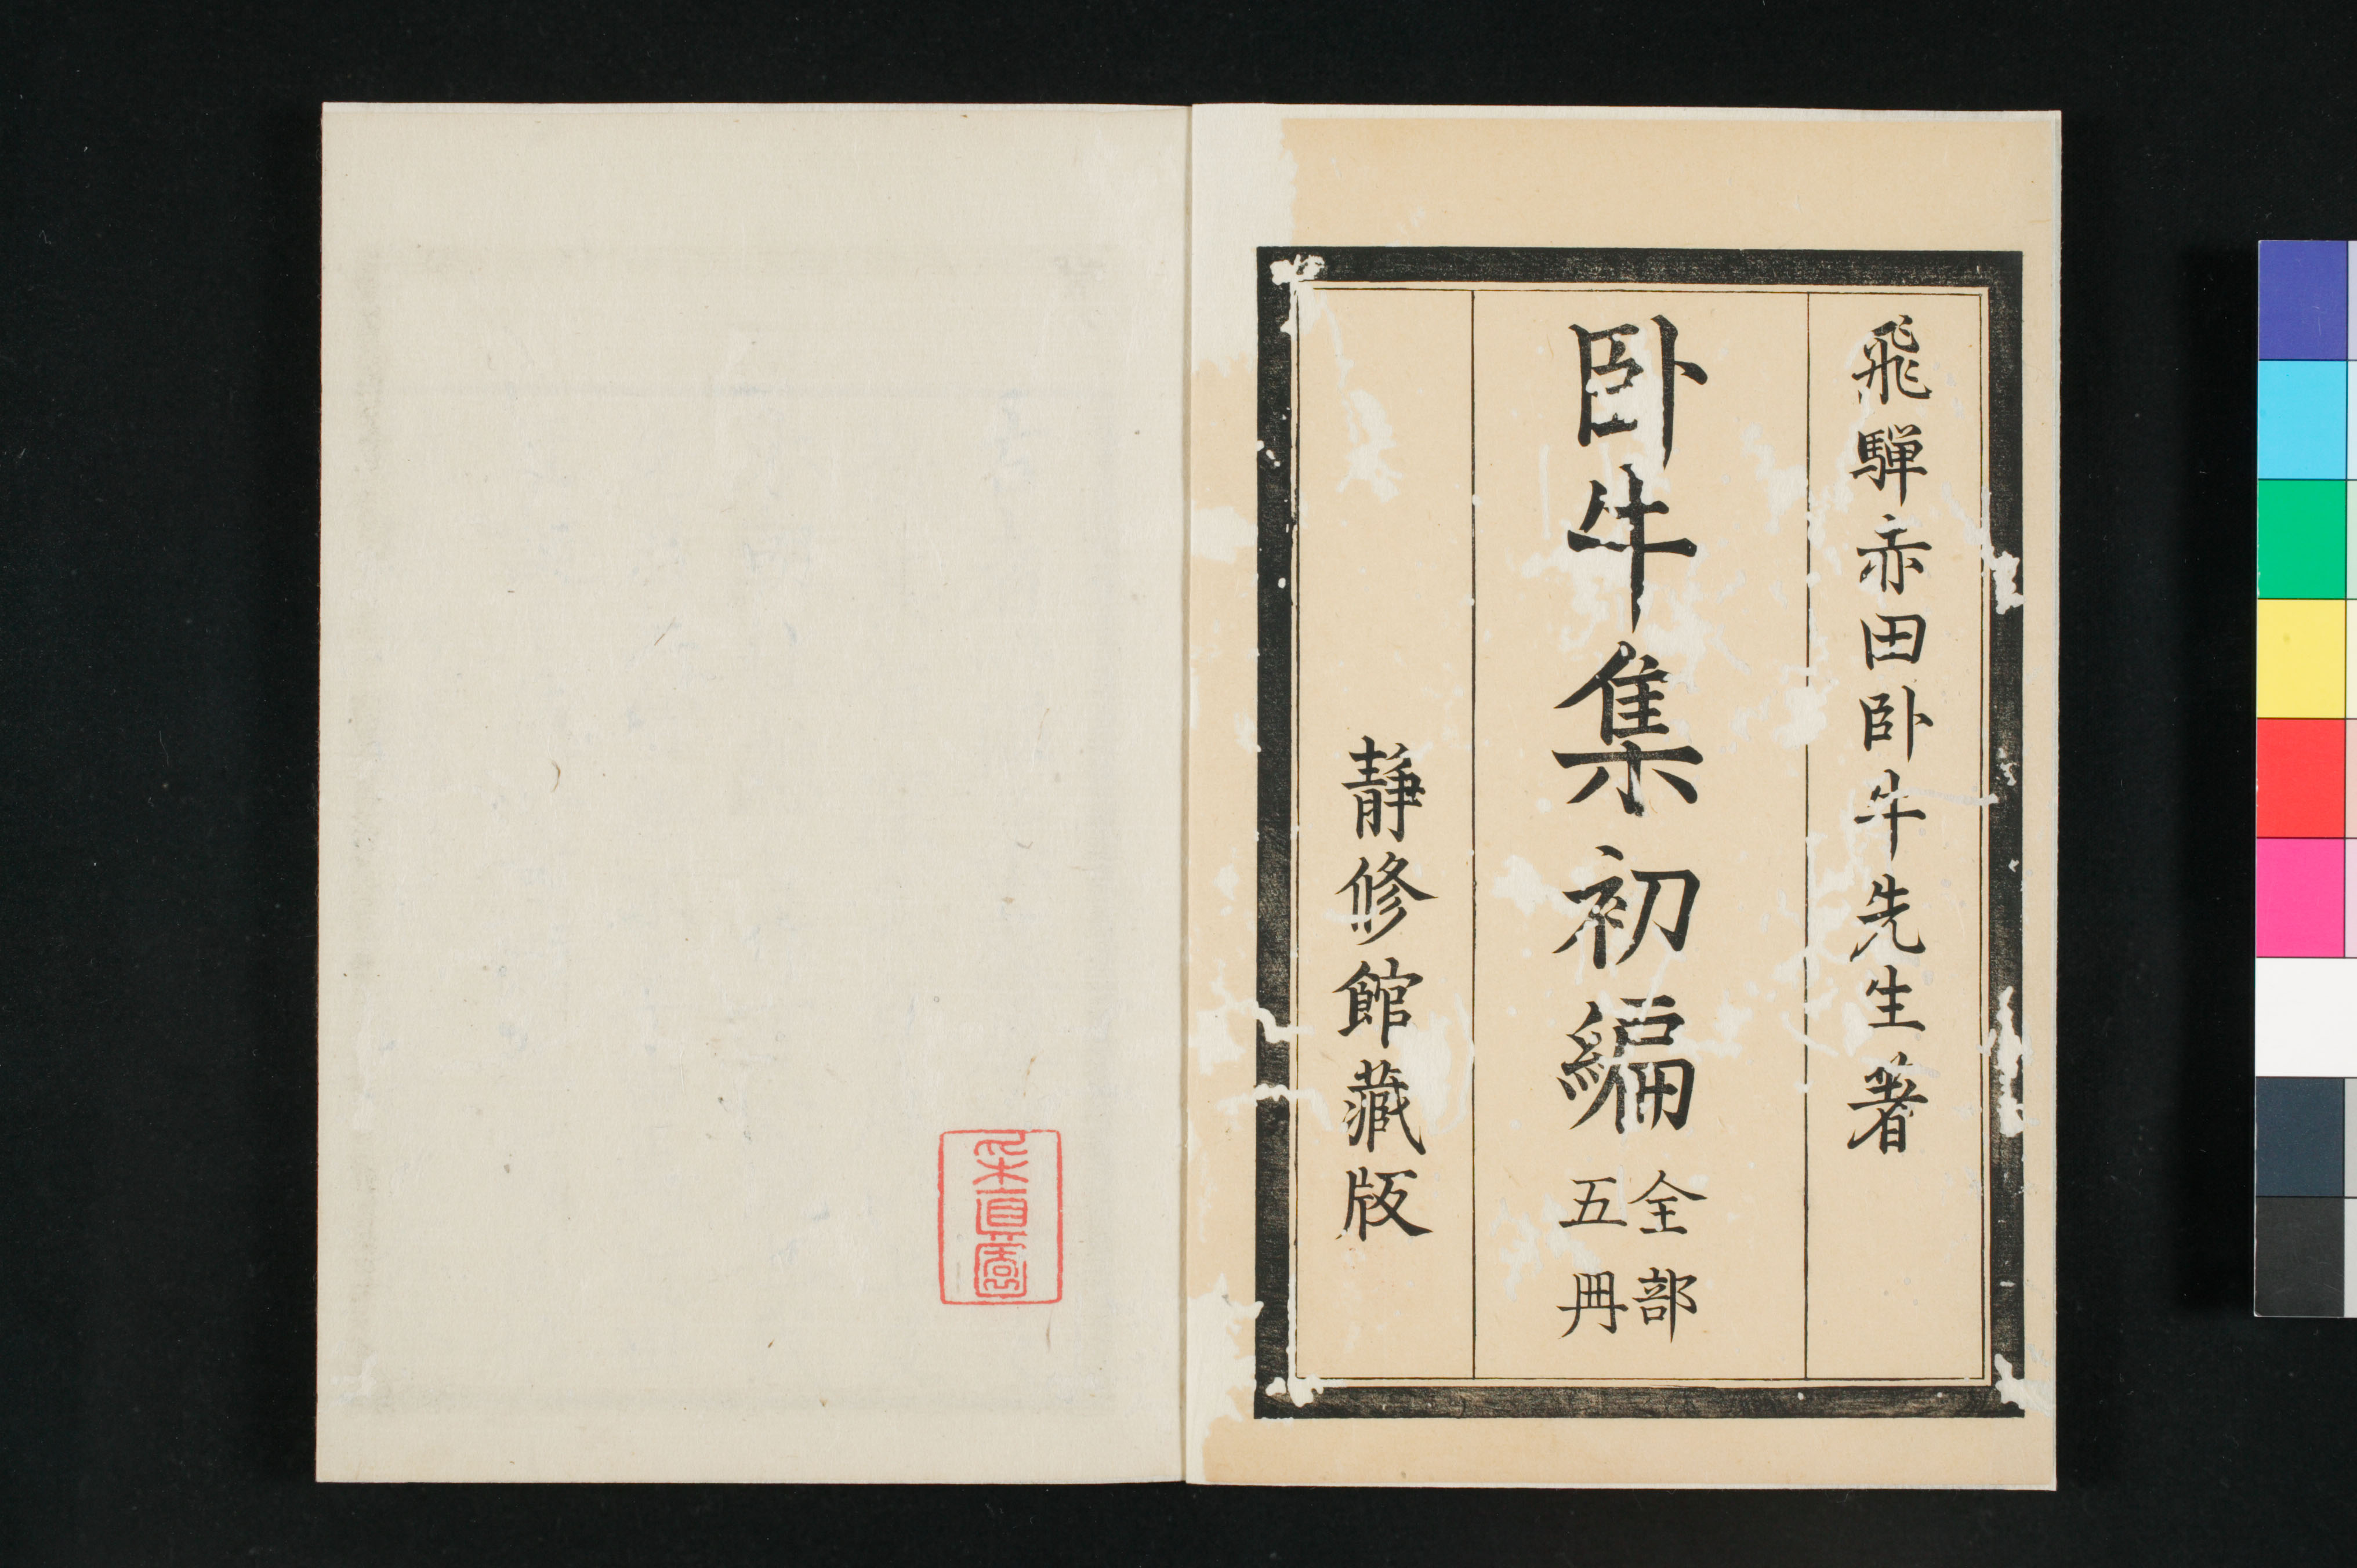 飛騨赤田臥牛先生著
臥牛集初編
全部
五冊
靜修館藏版